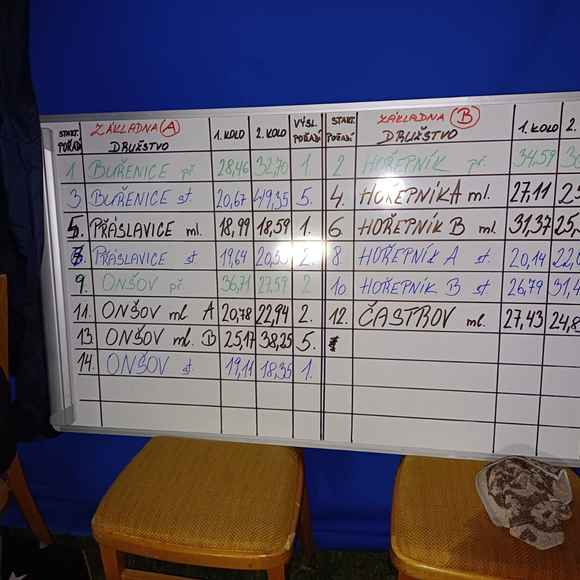 START. POŘADÍ ZÁKLADNA A DRUŽSTVO 1. KOLO 2. KOLO VÝSL. POŘADÍ START. POŘADÍ ZÁKLADNA B DRUŽSTVO 1. KOLO 2.
1 BUŘENICE př. 28,46 32,70 1. 2 HOŘEPNÍK př. 34,59
3. BUŘENICE st. 20,67 49,35 5. 4. HOŘEPNÍK A ml. 27,11
5. PŘÁSLAVICE ml. 18,99 18,59 1. 6. HOŘEPNÍK B ml. 31,37
PŘÁSLAVICE st 19,64 8 HOŘEPNÍK A st. 20,14
9. ONŠOV př. 36,71 27,59 2 10. HOŘEPNÍK B st 26,79
11. ONŠOV ml. A 20,78 22,94 2. 12. ČASTROV ml. 27,43 24,8
13. ONŠOV ml. B 25,17 38,25 5.
14. ONŠOV st. 19,11 18,35 1.